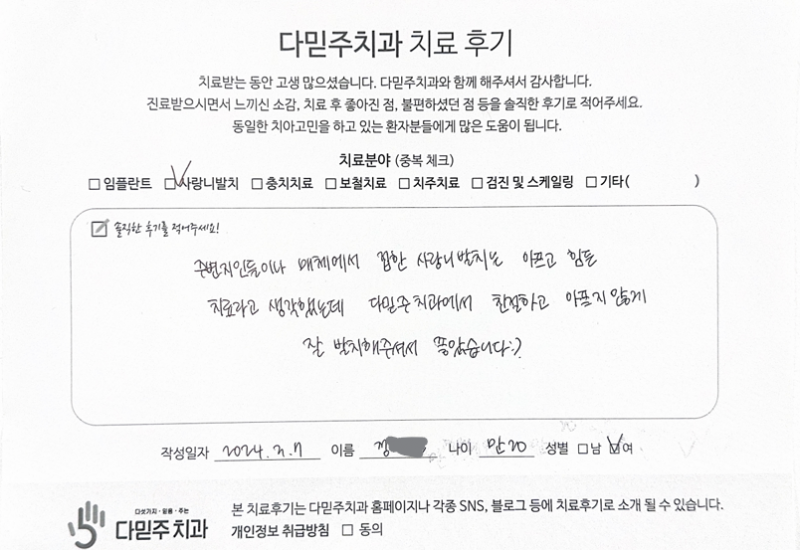 다믿주치과 치료 후기
치료받는 동안 고생 많으셨습니다. 다믿주치과와 함께 해주셔서 감사합니다.
진료받으시면서 느끼신 소감, 치료 후 좋아진 점, 불편하셨던 점 등을 솔직한 후기로 적어주세요.
동일한 치아고민을 하고 있는 환자분들에게 많은 도움이 됩니다.
치료분야 (중복 체크)
☐ 임플란트 ☑ 사랑니발치 ☐ 충치치료 ☐ 보철치료 ☐ 치주치료 ☐ 검진 및 스케일링 ☐ 기타( )
솔직한 후기를 적어주세요!
주변지인들이나 매체에서 접한 사랑니발치는 아프고 힘든
치료라고 생각했는데 다믿주치과에서 친절하고 아프지 않게
잘 발치해주셔서 좋았습니다:)
작성일자 2024. 2. 7 이름 정 나이 만20 성별 ☐남 ☑여
다섯가지·믿음·주는
다믿주치과
본 치료후기는 다믿주치과 홈페이지나 각종 SNS, 블로그 등에 치료후기로 소개 될 수 있습니다.
개인정보 취급방침 ☐ 동의